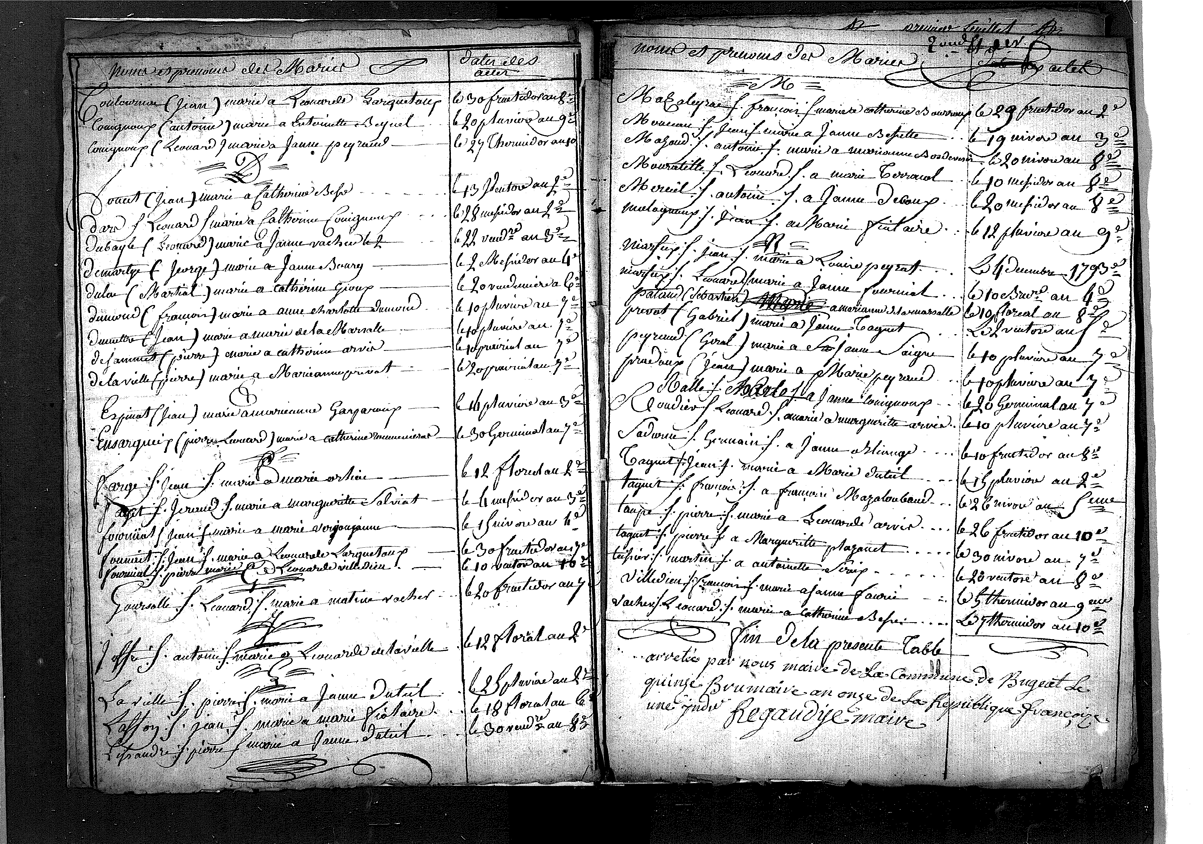 noms et prenoms des Mariés dates des actes
Coulournier (Jean) marié a Leonarde Larquetoup le 30 fructidor an 2e
Couignoup (antoine) marié a Antoinette le 20 pluviose an 9e
Couignoup (Leonard) marié a Janne peyraud le 27 Thermidor an 10
D
Doucet (Jean) marié a Catherine Besse le 13 Ventose an 2e
dars f. Leonard f. marié a Catherine Couignoup le 28 messidor an 2e
dubayle (Leonard) marié a Janne vacher le 22 vendre an 3e
demartye (George) marié a Janne Boury le 2 Messidor an 4e
dulac (Martial) marié a catherine Gioup le 20 vendemiere an 6e
dumond (françois) marié a anne charlotte dumond le 10 pluviose an 7e
dumettre (Jean) marié a marie de la Marsalle le 10 pluviose an 7e
dejammet (pierre) marié a catherine arvis le 10 prairial an 7e
delaville (pierre) marié a Marianne privat le 20 prairial an 7e
E
Espinat (Jean) marié a marianne Gargaroup le 14 pluviose an 3e
Ensarguei (pierre Leonard) marié a catherine le 30 Germinal an 7e
F
farge f. Jean f. marié a marie ortiou le 12 floreal an 2e
f. Jeraud f. marié a marguerite Salviat le 4 messidor an 3e
fourniat f. Jean f. marié a marie vergonjanne le 15 nivose an 4e
fourniat f. Jean f. marié a Leonarde Larquetoup le 30 fructidor an
fourniat f. pierre marié a Leonarde villedieu le 10 ventose an 10e
G
Goursolle f. Leonard f. marié a matine vacher le 20 fructidor an 7
J
Joffre f. antoine f. marié a Leonarde delavialle le 12 floreal an 2e
L
Laville f. pierre f. marié a Janne duteil le 25 pluviose an 2e
Laffon f. Jean f. marié a marie fiotaire le 18 floreal an 6e
Lissandre f. pierre f. marié a Janne duteil le 30 vendre an 8e
premier feuillet
noms et prenoms des Mariés Date des actes
M
Mazaleyrat f. françois f. marié a catherine Bourroup le 29 fructidor an 2e
Moreau f. Jean f. marié a Janne Bessette le 19 nivose an 3e
Mazaud f. antoine f. marié a marianne Bordenave le 20 nivose an 8e
Mouratille f. Leonard f. a marie Terracol le 10 messidor an 8e
Moreil f. antoine f. a Janne Decoup le 20 messidor an 8e
malagnoup f. Jean f. a Marie fiotaire le 12 pluviose an 9e
N
niarfeix f. jean f. marié a Louise peyrat Le 4 decembre 1793
niarfeix f. Leonard marié a Janne fourniat le 10 Brure an 4e
paland (Sebastien) marié a marianne de la massalle le 10 floreal an 8e
prevot (Gabriel) marié a Janne Taguet Le 2 ventose an
peyraud (Giral) marié a Janne Saigne le 10 pluviose an 7e
pradoup (Jean) marié a Marie peyraud le 10 pluviose an 7e
a Janne Couignoup le 20 Germinal an 7e
Roudier f. Leonard f. marié a marguerite arvis le 10 pluviose an 7e
Sadourn f. Germain f. a Janne orliange le 10 fructidor an 8e
Taguet f. Jean f. marié a Marie duteil le 15 pluviose an 2e
taguet f. françois f. a françoise Mazaloubaud le 26 nivose an 5eme
taupe f. pierre f. marié a Leonarde arvis le 26 fructidor an 10e
taguet f. pierre f. a Marguerite plazanet le 30 nivose an 7e
tixier f. martin f. a antoinette le 20 ventose an 8e
villedieu f. françois f. marié a Janne faurie le 5 thermidor an 9me
vacher f. Leonard f. marié a Catherine Besse le 5 thermidor an 10e
fin de la presente Table
arretée par nous maire de La Commune de Bugeat Le
quinze Brumaire an onze de La République françoize
une et indble
Regaudye maire